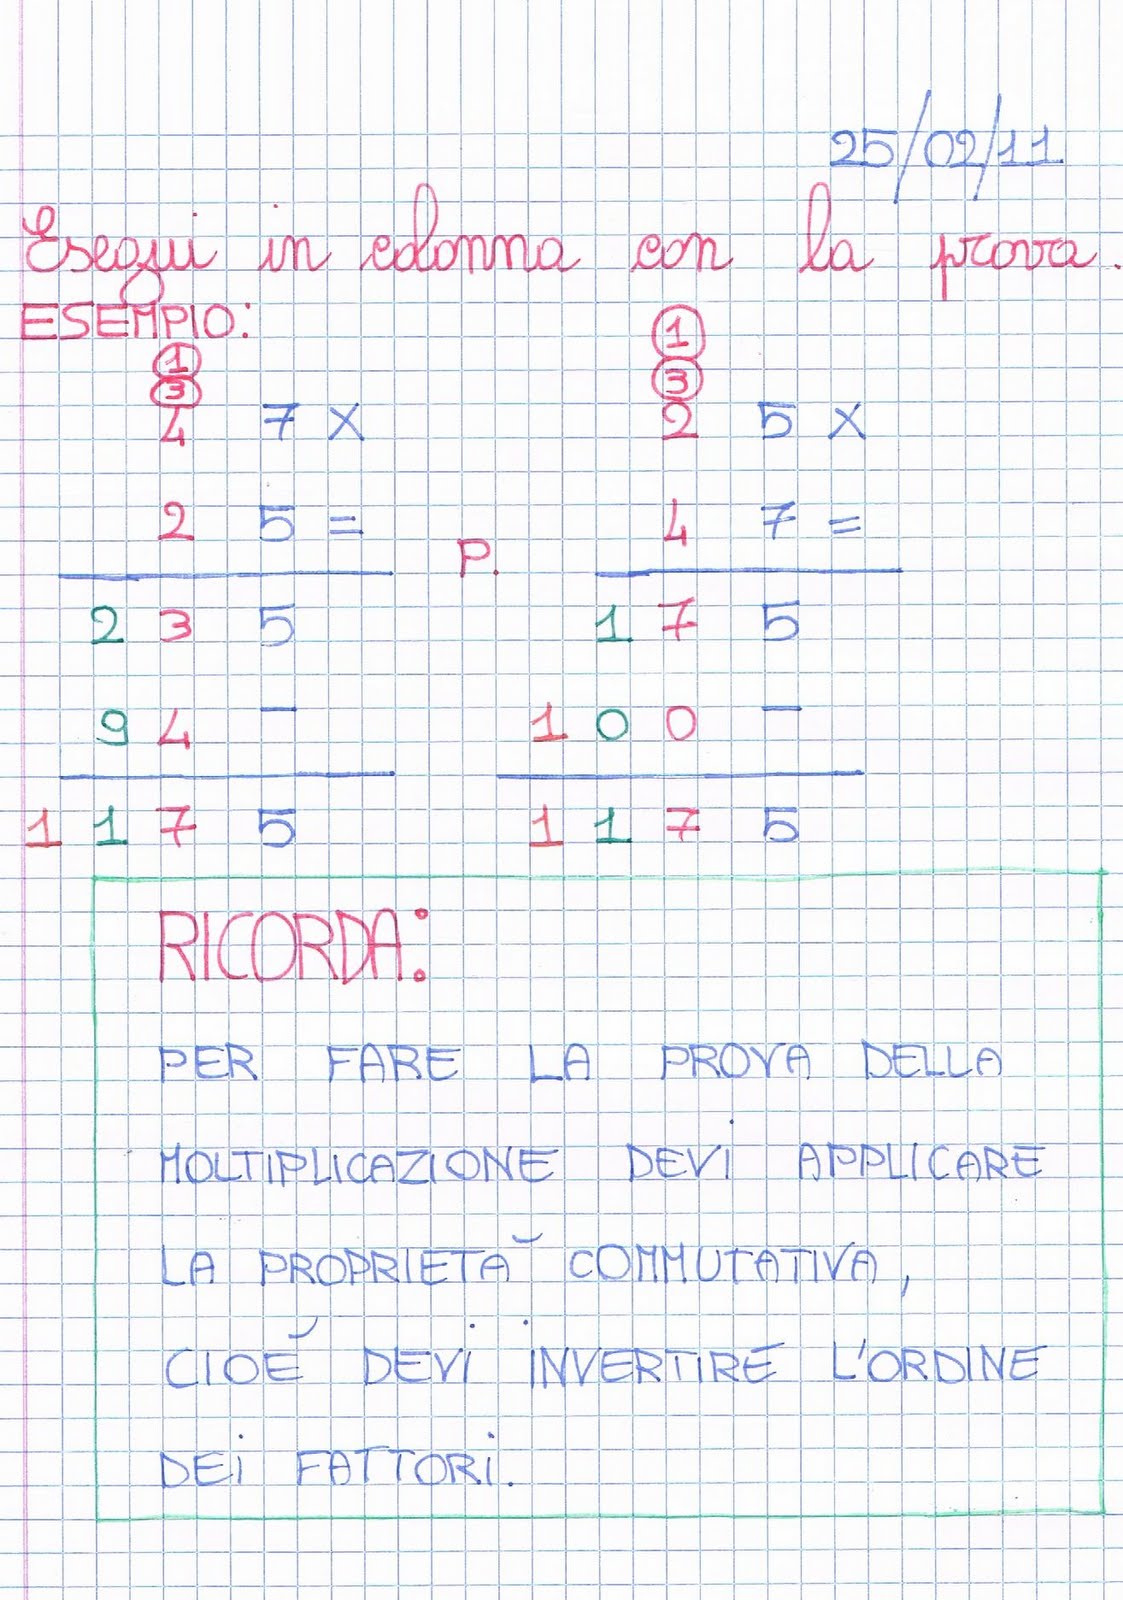 25/02/11
Esegui in colonna con la prova.
ESEMPIO:
1 1
3 3
4 7 X 2 5 X
2 5 = 4 7 =
P.
2 3 5 1 7 5
9 4 – 1 0 0 –
1 1 7 5 1 1 7 5
RICORDA:
PER FARE LA PROVA DELLA
MOLTIPLICAZIONE DEVI APPLICARE
LA PROPRIETÀ COMMUTATIVA,
CIOÉ DEVI INVERTIRE L'ORDINE
DEI FATTORI.